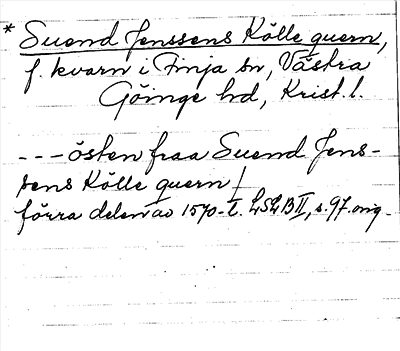 * Suend Jenssens Kölle quern,
f. kvarn i Finja sn, Västra
Göinge hd, Krist. l.
--- östen fraa Suend Jens-
sens Kölle quern/
förra delen av 1570-t. LSLB II, s. 97. orig.